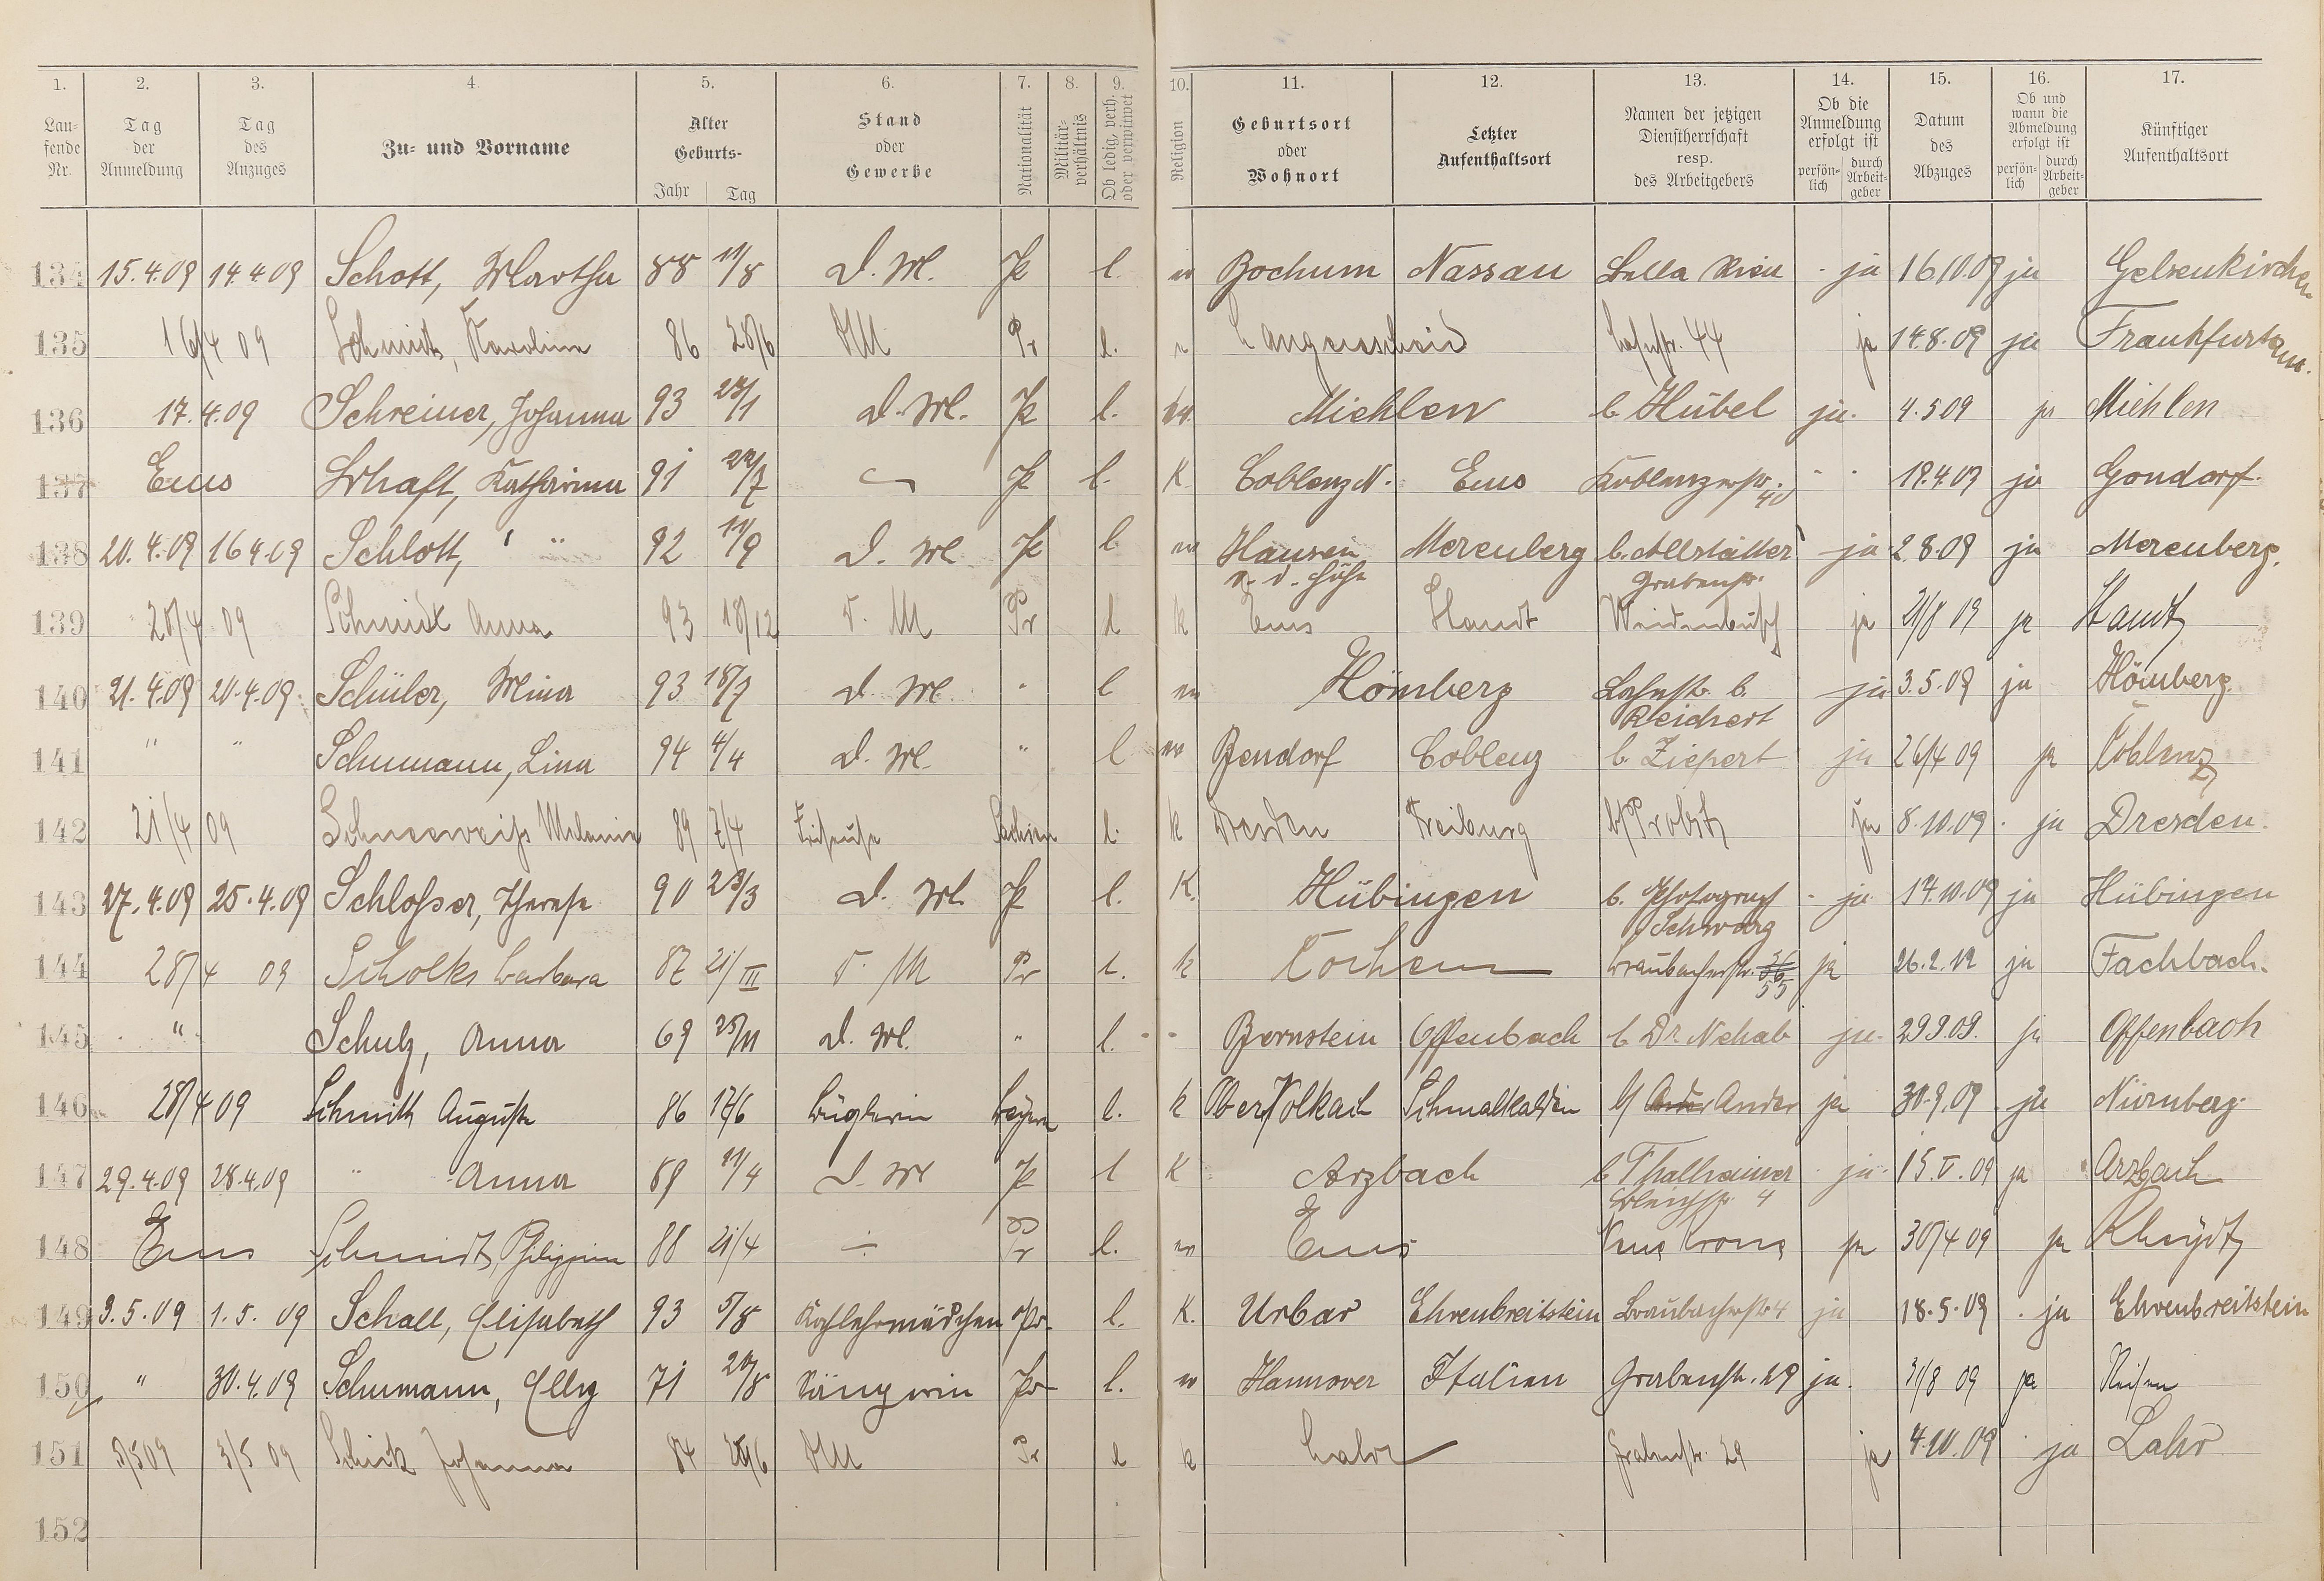 1. 2. 3. 4. 5. 6. 7. 8. 9. 10. 11. 12. 13. 14. 15. 16. 17.
Lau-
fende
Nr.
Tag
der
Anmeldung
Tag
des
Anzuges
Zu- und Vorname
Alter
Geburts-
Jahr Tag
Stand
oder
Gewerbe
Nationalität
Militär-
verhältnis
Ob ledig, verh.
oder verwitwet
Religion
Geburtsort
oder
Wohnort
Letzter
Aufenthaltsort
Namen der jetzigen
Dienstherrschaft
resp.
des Arbeitgebers
Ob die
Anmeldung
erfolgt ist
persön-
lich
durch
Arbeit-
geber
Datum
des
Abzuges
Ob und
wann die
Abmeldung
erfolgt ist
persön-
lich
durch
Arbeit-
geber
Künftiger
Aufenthaltsort
134 15.4.09 14.4.09 Schott, Martha 88 11/8 D. M. Pr l. ev Bochum Nassau ja 16.10.09 ja Gelsenkirchen
135 16/4 09 Schmidt, Karoline 86 28/6 DM Pr l. Langenscheid Lahnstr. 44 ja 14.8.09 ja Frankfurt a/m.
136 17.4.09 Schreiner, Johanna 93 23/1 D. M. Pr l. ev. Miehlen b. Hübel ja. 4.5.09 ja Miehlen
137 Ems Schaft, Katharina 91 22/7 Pr l. K Coblenz N. Ems Koblenzerstr. 40 - - 19.4.09 ja Gondorf.
138 20.4.09 16.4.09 Schlott, " " 92 11/9 D. M Pr l ev Hausen Merenberg b. Allstätter ja 2.8.09 ja Merenberg.
v. d. Höhe Grabenstr.
139 20/4 09 Schmidt Anna 93 18/12 D. M Pr l k Ems Staudt Weidenbusch ja 21/8 09 ja Staudt
140 21.4.09 20.4.09. Schüler, Mina 93 18/7 D. M. " l ev Hömberg Lahnstr. b. ja 3.5.09 ja Hömberg.
Reichert
141 " " Schumann, Lina 94 4/4 D. M. " l ev Bendorf Coblenz b. Ziepert ja 26/4 09 ja Coblenz
142 21/4 09 Schneeweiss Melanie 89 7/4 Friseuse Sachsen l. k Dresden Freiburg b/ Probst ja 8.10.09. ja Dresden.
143 27.4.09 25.4.09 Schlosser, Therese 90 23/3 D. M. Pr l. K. Hübingen b. Photograph - ja 14.10.09 ja Hübingen
Schwarz
144 28/4 09 Scholks Barbara 87 21/III D. M Pr l. k Cochem Braubacherstr. 55 ja 26.2.12 ja Fachbach.
145 " Schulz, Anna 69 25/11 D. M. " l. - - Bernstein Offenbach b Dr. Nehab ja. 29.9.09. ja Offenbach
146 28/4 09 Schmitt Auguste 86 17/6 Büglerin Bayern l. k Ober Volkach Schmalkalden b/ Ander ja 30.9.09 ja Nürnberg.
147 29.4.09 28.4.09 " Anna 89 11/4 D. M Pr l K Arzbach b Thalheimer ja. 15.V.09 ja Arzbach
Bleichstr. 4
148 Ems Schmidt Philippine 88 21/4 Pr l. ev Ems Neue Krone ja 30/4 09 ja Rheydt
149 3.5.09 1.5.09 Schall, Elisabeth 93 5/8 Kochlehrmädchen Pr. l. K. Urbar Ehrenbreitstein Braubacherstr 4 ja 18.5.09. ja Ehrenbreitstein
150 " 30.4.09 Schumann, Elly 71 20/8 Sängerin Pr l. ev Hannover Italien Grabenstr. 29 ja. 31/8 09 ja Reisen
151 3/5 09 3/5 09 Schick Johanna 84 DM Pr l k Lahr Grabenstr. 29 ja 4.10.09 ja Lahr
152